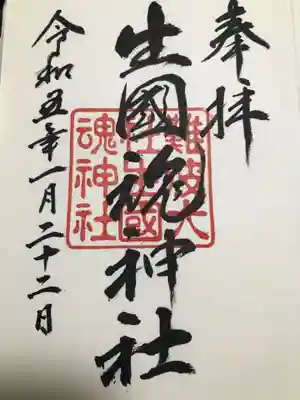 奉拝
生國魂神社
難波大
社生國
魂神社
令和五年一月二十二日